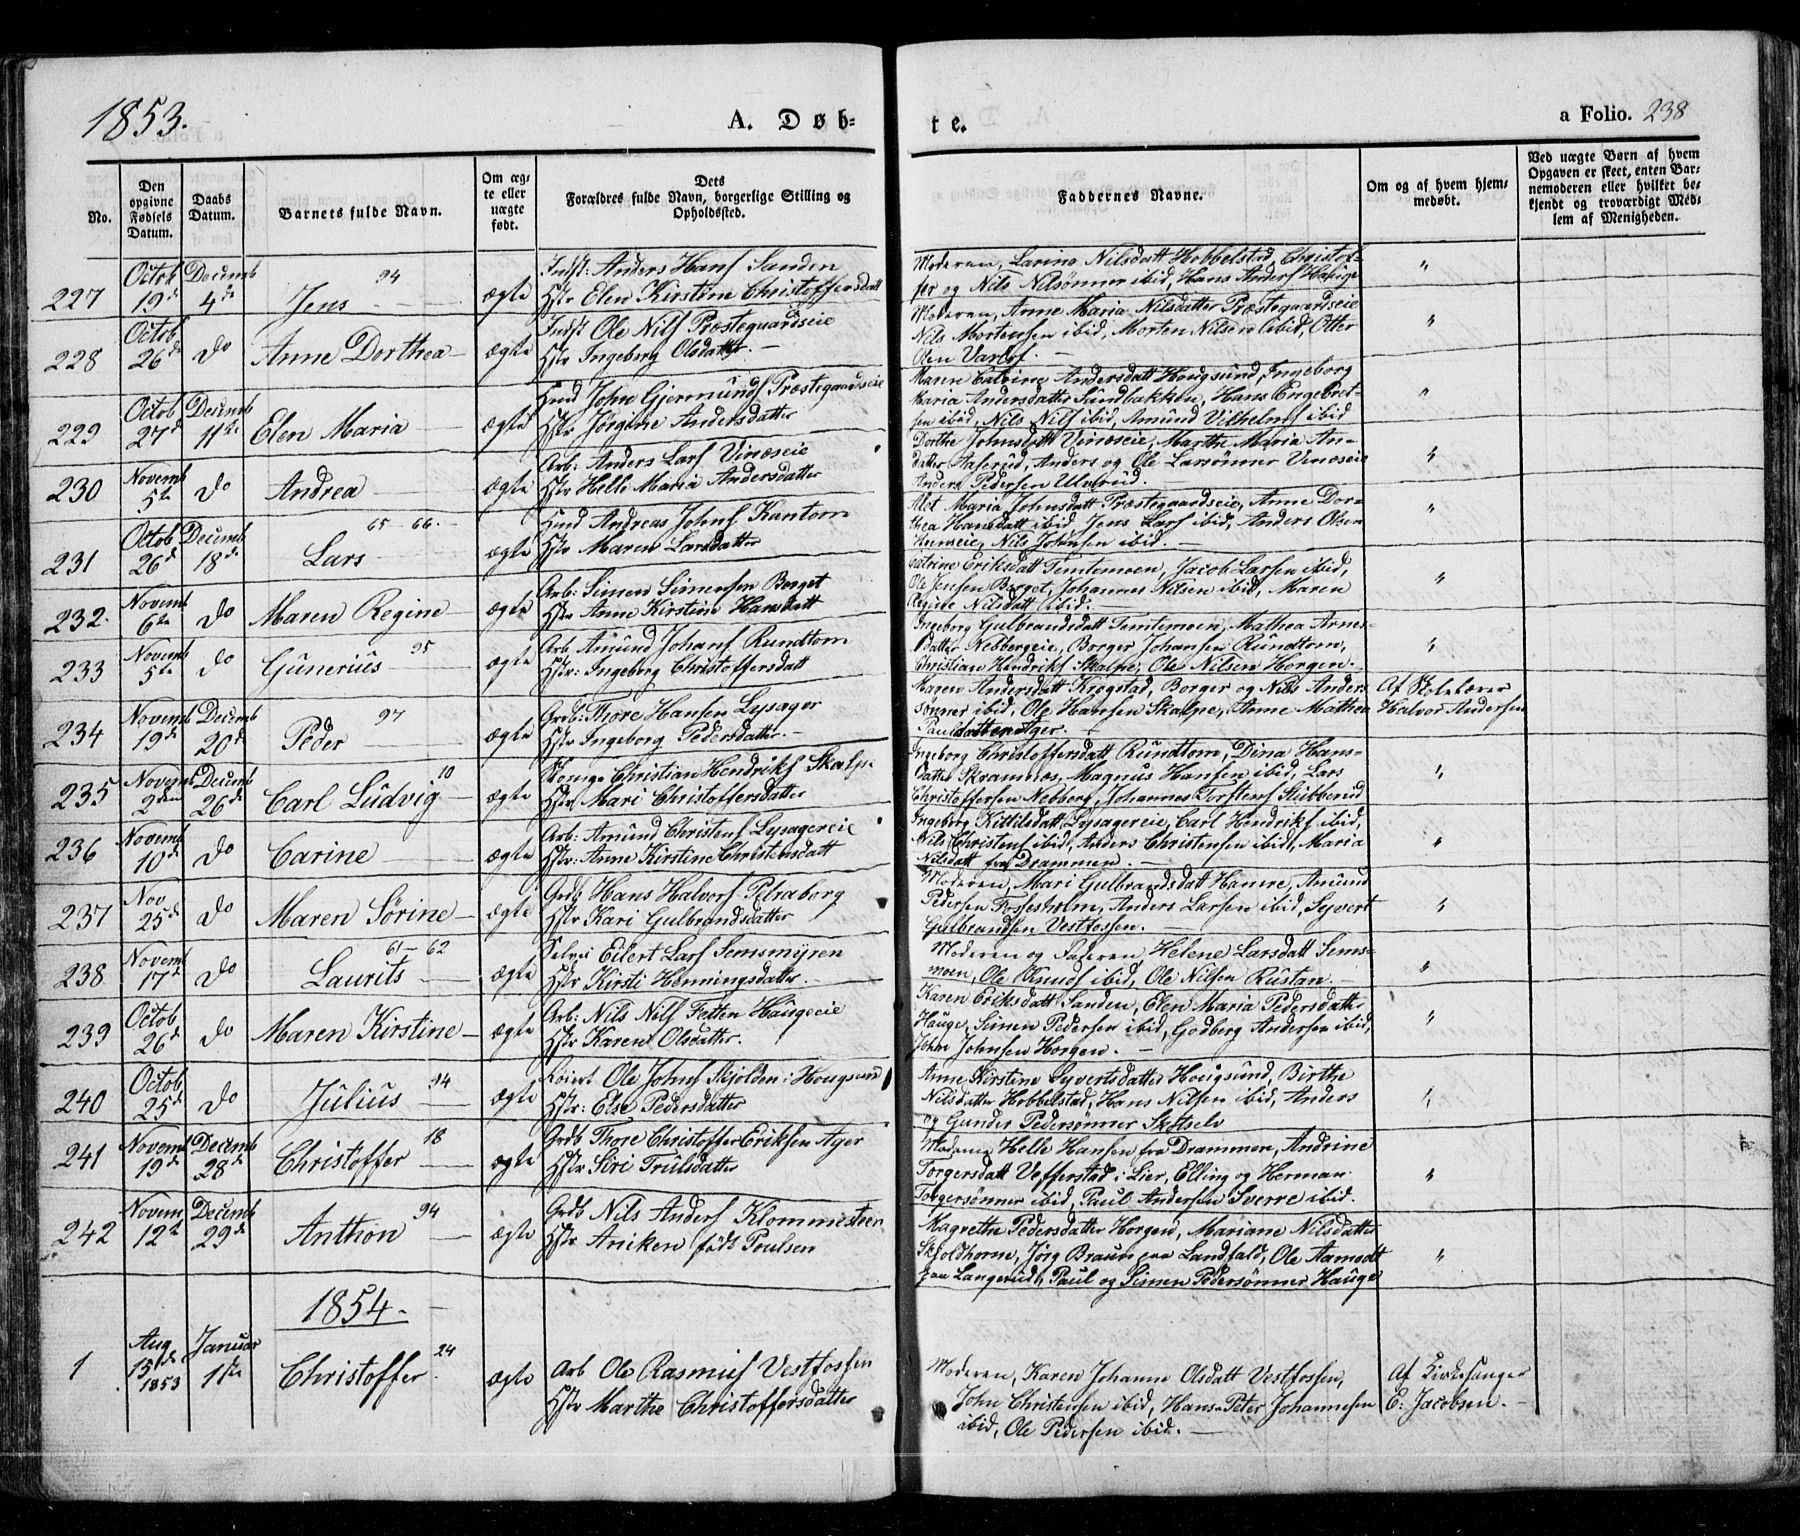 1853.
A. Døb-
te.
a Folio. 238
No.
Den opgivne Fødsels Datum.
Daabs Datum.
Barnets fulde Navn.
Om ægte eller uægte født.
Dets Forældres fulde Navn, borgerlige Stilling og Opholdssted.
Faddernes Navne.
Om og af hvem hjemmedøbt.
Ved uægte Børn af hvem Opgaven er skeet, enten Barnemoderen eller hvilket bekjendt og troværdigt Medlem af Menigheden.
227
Octob 19de
Decemb 4de
94
Jens
ægte
Indst: Anders Hans Sanden
Hstr Elen Kirstine Christoffersdatt
Moderen, Larine Nilsdatt Hobbelstad, Christof-
fer og Nils Nilsønner ibid, Hans Anders Hauge
"
228
Octob 26de
do
Anne Dorthea
ægte
Indst Ole Nils Præstegaardseie
Hstr Ingeborg Olsdatter
Moderen, Anne Maria Nilsdatter Præstegaardseie
Nils Mortensen ibid, Morten Nilsen ibid, Otter
Olsen
"
229
Octob 27de
Decemb 11te
Elen Maria
ægte
John Gjermunds Præstegaardseie
Hstr Jørgine Andersdatter
Maren Catrine Andersdatt Hougsund, Ingeborg
Maria Andersdatter Sandbakken, Hans Engebret-
sen ibid, Nils Nils ibid, Amund Vilhelms ibid
"
230
Novemb 5te
do
Andrea
ægte
Arb: Anders Lars Vinæseie
Hstr Helle Maria Andersdatter
Dorthe Johnsdatt Vinæseie, Marthe Maria An-
datter Aaserud, Anders og Ole Larsønner Vinæseie
Anders Pedersen Ulverud
"
231
Octob 26de
Decemb 18de
65 - 66.
Lars
ægte
Andreas Johns Kantom
Hstr Maren Larsdatter
Alet Maria Johnsdatt Præstegaardseie, Anne Dor-
thea Hansdatt ibid, Jens Lars ibid, Anders Olsen
Nils Johnsen ibid.
"
232.
Novemb 6te
do
Maren Regine
ægte
Arb: Simen Simensen Borget
Hstr Anne Kirstine Hansdatt
Catrine Eriksdatt Temtemoen, Jacob Larsen ibid,
Ole Jensen Borget, Johannes Nilsen ibid, Maren
Regine Nilsdatt ibid.
"
233
Novemb 5te
do
95
Gunerius
ægte
Arb Amund Johans Rundtom
Hstr: Ingeborg Christoffersdatt
Ingeborg Gulbrandsdatt Temtemoen, Mathea Arnes-
datter Nebbergeie, Borger Johansen Rundtom,
Christian Hendriks Skalpe, Ole Nilsen Horgen.
"
234
Novemb 19de
Decemb 20de
97
Peder
ægte
Grdb: Thore Hansen Lysager
Hstr Ingeborg Pedersdatter.
Maren Andersdatt Krogstad, Borger og Nils Anders
sønner ibid, Ole Hansen Skalpe, Anne Mathea
Paulsdatter Ager.
Af Skolelærer
Halvor Andersen
235
Novemb 2den
Decemb 26de
10
Carl Ludvig
ægte
Christian Hendriks Skalpe
Hstr: Mari Christoffersdatter
Ingeborg Christoffersdatt Rundtom, Dina Hans-
datter Skramnæs, Magnus Hansen ibid, Lars
Christoffersen Nebberg, Johannes Torstens Stubberud
"
236
Novemb 10de
do
Carine
ægte
Arb: Amund Christens Lysagereie
Hstr: Anne Kirstine Christensdatt
Ingeborg Kittilsdatt Lysagereie, Carl Hendriks ibid,
Nils Christens ibid, Anders Christensen ibid, Maria
Nilsdatt fra Drammen.
"
237
Nov 25de
do
Maren Sørine
ægte
Grdb Hans Halvors Petraborg
Hstr Kari Gulbrandsdatter
Moderen, Mari Gulbrandsdatt Hamre, Amund
Pedersen Fossesholm, Anders Larsen ibid, Syvert
Gulbrandsen Vestfossen.
"
238
Novemb 17de
do
61 - 62
Laurits
ægte
Selvei Eilert Lars Semsmyren
Hstr Kirsti Henningsdatter.
Moderen og Faderen, Helene Larsdatt Sems-
moen, Ole Knuds ibid, Ole Nilsen Rustan
"
239
Octob 26de
do
Maren Kirstine
ægte
Arb: Nils Nils Fetten Haugeeie
Hstr Karen Olsdatter.
Karen Eriksdatt Sanden, Elen Maria Pedersdatter
Hauge, Simen Pedersen ibid, Godberg Andersen ibid,
John Johnsen Horgen.
"
240
Octob 25de
do
94
Julius
ægte
Ole Johns Skjolden i Hougsund
Hstr: Else Pedersdatter
Anne Kirstine Syvertsdatter Hougsund, Birthe
Nilsdatter Hobbelstad, Hans Nilsen ibid, Anders
og Gunder Pedersønner Skotselv
"
241
Novemb 19de
Decemb 28de
18
Christoffer
ægte
Grdb Thore Christoffer Eriksen Ager
Hstr Siri Trulsdatter
Moderen Helle Hansen fra Drammen, Andrine
Torgersdatt Vefferstad i Lier, Elling og Herman
Torgersønner ibid, Paul Andersen Sverre ibid.
"
242
Novem 12te
Decemb 29de
94
Anthon
ægte
Grdb Nils Anders Klommesteen
Hstr Aniken født Poulsen
Magrethe Pedersdatter Horgen, Mariane Nilsdatter
Skjoldhorne, Jørg Braun paa Landfald, Ole Aamodt
paa Langerud, Paul og Simen Pedersønner Hauge
"
1854.
1
Aug 15de 1853
Januar 1ste
24
Christoffer.
ægte
Arb Ole Rasmus Vestfossen
Hstr Marthe Christoffersdatter
Moderen, Karen Johanne Olsdatt Vestfossen,
John Christensen ibid, Hans Peter Johannesen
ibid, Ole Pedersen ibid.
Af Kirkesanger
E: Jacobsen.